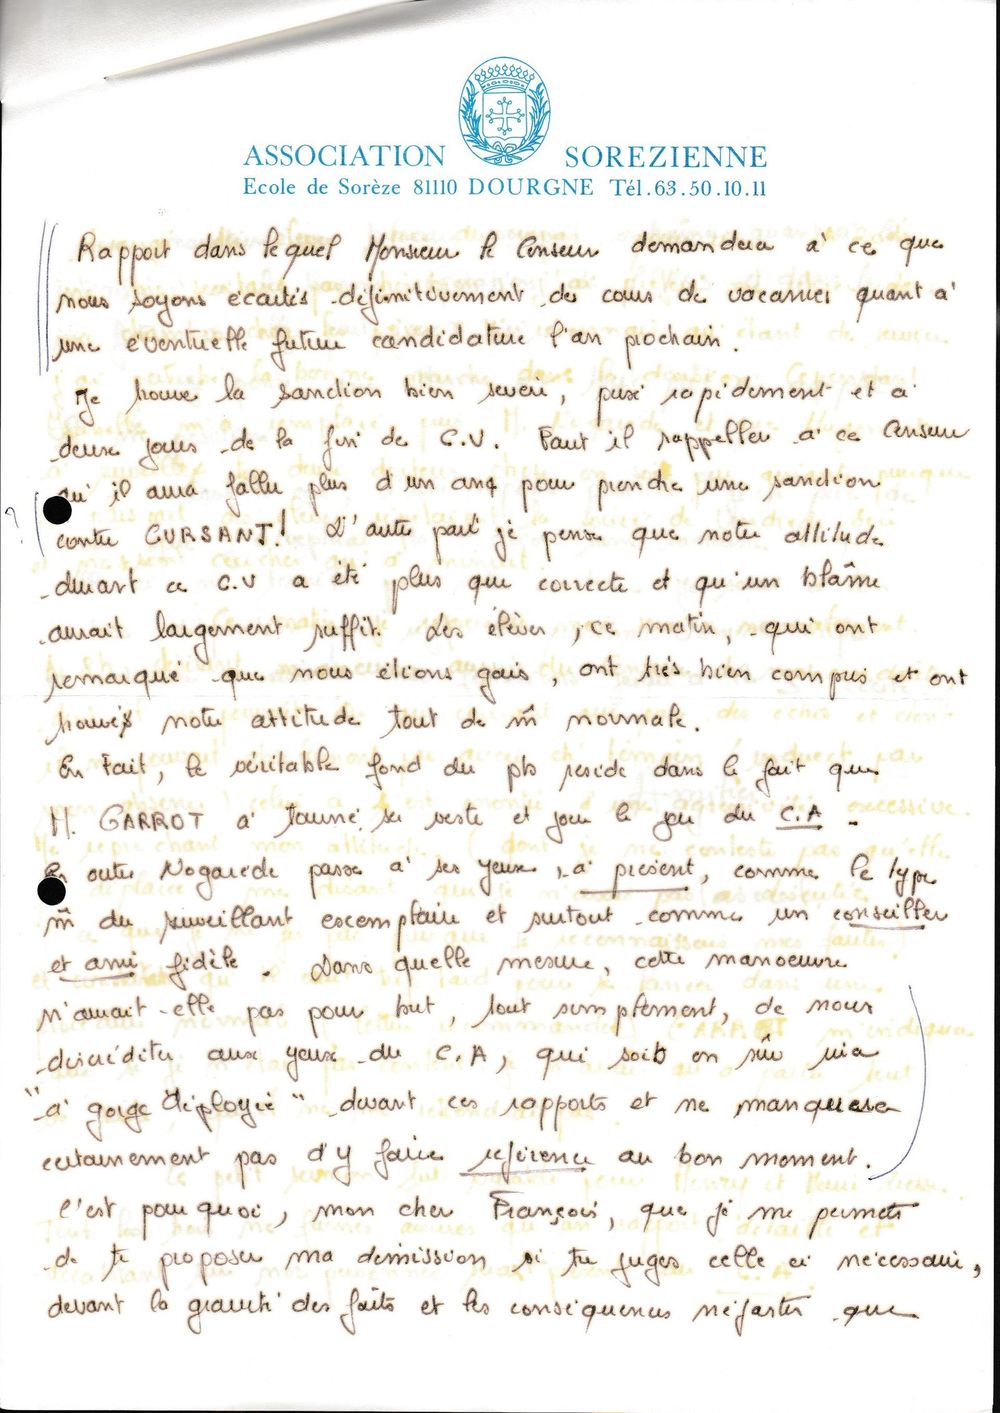 ASSOCIATION SOREZIENNE
Ecole de Sorèze 81110 DOURGNE Tél.63.50.10.11
Rapport dans lequel Monsieur le Censeur demandera à ce que
nous soyons écartés définitivement des cours de vacances quant à
une éventuelle future candidature l'an prochain.
Je trouve la sanction bien sévère, prise rapidement et à
deux jours de la fin de C.V. Faut il rappeller à ce Censeur
qu'il aura fallu plus d'un an pour prendre une sanction
? contre CURSANT! D'autre part je pense que notre attitude
durant ce C.V a été plus que correcte et qu'un blâme
aurait largement suffit. Les élèves, ce matin, qui ont
remarqué que nous étions gais, ont très bien compris et ont
trouvés notre attitude tout de m̂ normale.
En Fait, le véritable fond du pb reside dans le fait que
M. GARROT à tourné sa veste et joue le jeu du C.A.
En outre Nogarède passe à ses yeux, à présent, comme le type
m̂ du surveillant escemplaire et surtout comme un conseiller
et ami fidèle. Dans quelle mesure, cette manoeuvre
n'aurait-elle pas pour but, tout simplement, de nous
discréditer aux yeux du C.A, qui soit en sûr rira
"à gorge déployée" devant ces rapports et ne manquera
certainement pas d'y faire référence au bon moment.
C'est pourquoi, mon cher François, que je me permets
de te proposer ma démission si tu juges celle ci nécessaire,
devant la gravité des faits et les conséquences néfastes que